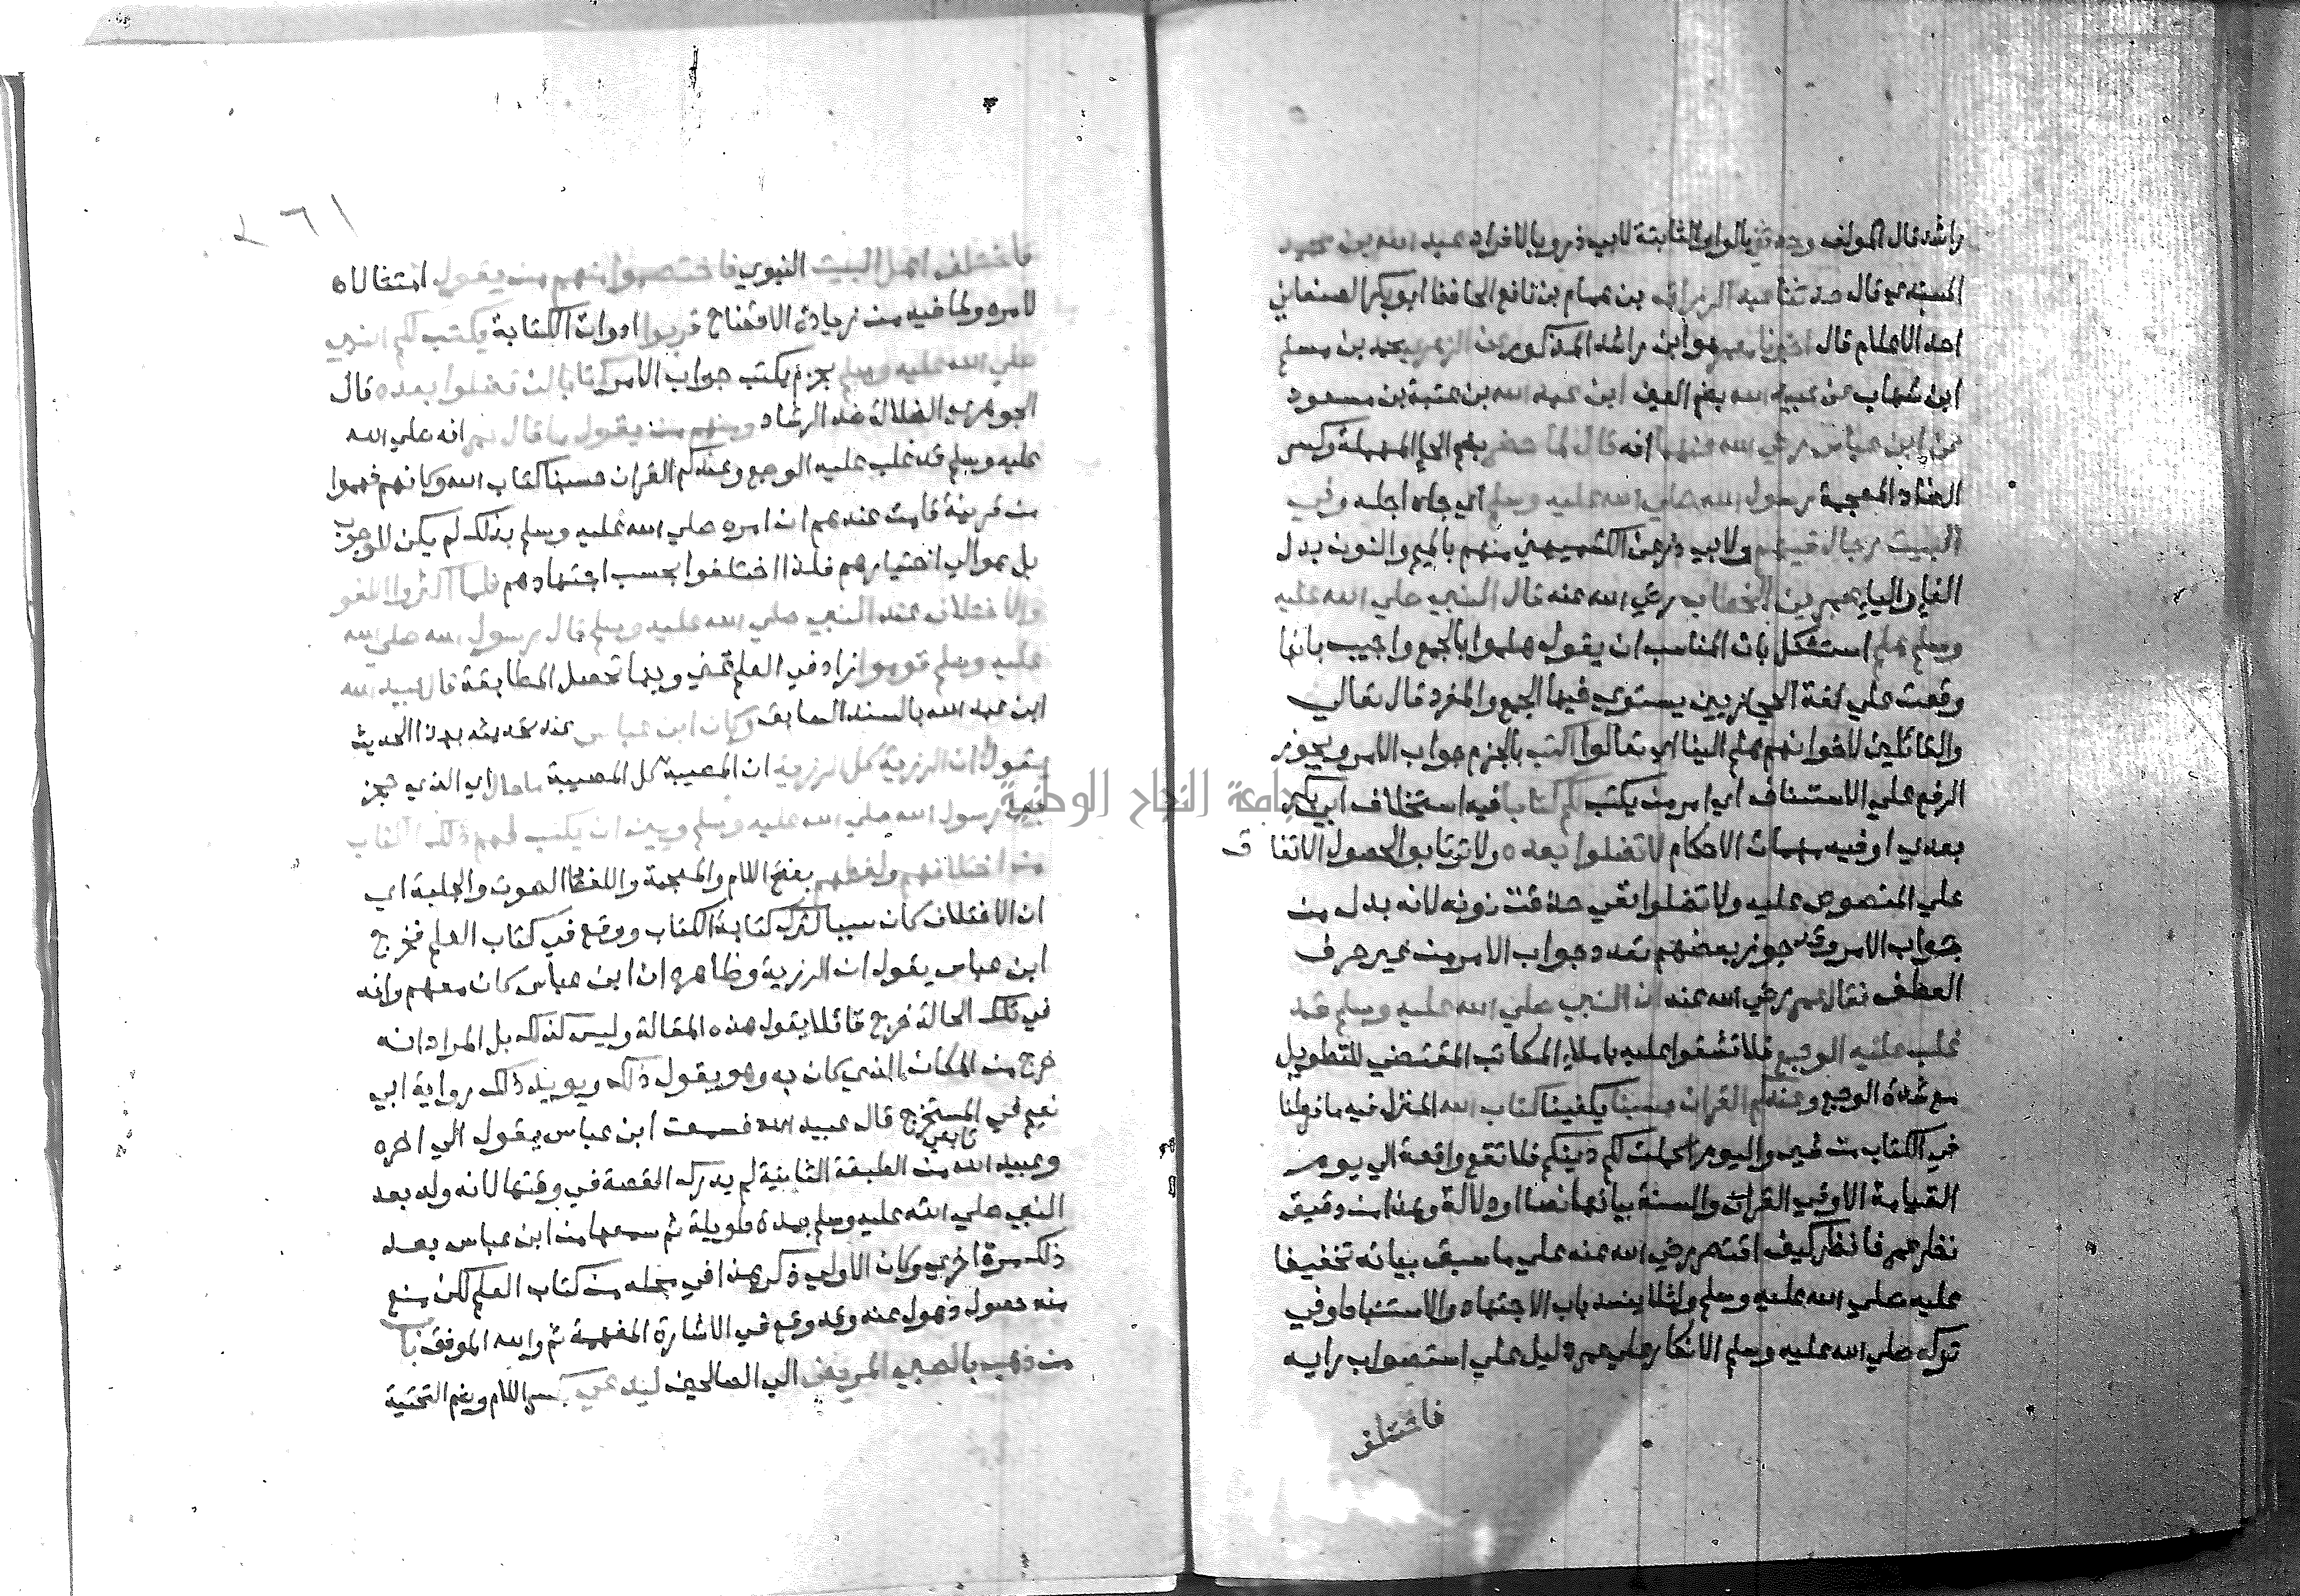 راشد قال المولف وحدثني بالواو الثابتة لابي ذر وبالافراد عبد الله بن محمد
المسندي قال حدثنا عبد الرزاق بن همام بن نافع الحافظ ابو بكر الصنعاني
احد الاعلام قال اخبرنا معمر هو ابن راشد المذكور عن الزهري محمد بن مسلم
ابن شهاب عن عبيد الله بضم العين ابن عبد الله بن عتبة بن مسعود
عن ابن عباس رضي الله عنهما انه قال لما حضر بضم الحا المهملة وكسر
الضاد المعجمة رسول الله صلي الله عليه وسلم اي جاه اجله وفي
البيت رجال فيهم ولابي ذر عن الكشميهني منهم بالميم والنون بدل
الفا والياء عمر بن الخطاب رضي الله عنه قال النبي صلي الله عليه
وسلم هلم استشكل بان المناسب ان يقول هلموا بالجمع واجيب بانها
وقعت علي لغة الحجازيين يستوي فيها الجمع والمفرد قال تعالي
والقائلين لاخوانهم هلم الينا اي تعالوا اكتب بالجزم جواب الامر ويجوز
الرفع علي الاستئناف اي امر من يكتب لكم كتابا فيه استخلاف ابي بكر
بعدي او فيه مهمات الاحكام لا تضلوا بعده ولا ترتابو الحصول الاتفاق
علي المنصوص عليه ولا تضلوا نفي حذفت نونه لانه بدل من
جواب الامر وقد جوز بعضهم تعدد جواب الامر من غير حرف
العطف فقال عمر رضي الله عنه ان النبي صلي الله عليه وسلم قد
غلب عليه الوجع فلا تشقوا عليه باملاء الكتاب المقتضي للتطويل
مع شدة الوجع وعندكم القران حسبنا يكفينا كتاب الله المنزل فيه ما فرطنا
في الكتاب من شي واليوم اكملت لكم دينكم فلا تقع واقعة الي يوم
القيامة الا وفي القران والسنة بيانها نصا او دلالة وهذا من دقيق
نظر عمر فانظر كيف اقتصر رضي الله عنه علي ما سبق بيانه تخفيفا
عليه صلي الله عليه وسلم ولئلا ينسد باب الاجتهاد والاستنباط وفي
تركه صلي الله عليه وسلم الانكار علي عمر دليل علي استصواب رايه
فاختلف
فاختلف اهل البيت النبوي فاختصموا منهم من يقول امتثالا
لامره ولما فيه من زيادة الافتتاح قربوا ادوات الكتابة يكتب لكم النبي
صلي الله عليه وسلم بجزم يكتب جواب الامر كتابا لن تضلوا بعده قال
الجوهري الضلال ضد الرشاد ومنهم من يقول ما قال عمر انه صلي الله
عليه وسلم قد غلب عليه الوجع وعندكم القران حسبنا كتاب الله وكانهم فهموا
من قرينة قامت عندهم ان امره صلي الله عليه وسلم بذلك لم يكن للوجوب
بل هو الي اختيارهم فلذا اختلفوا بحسب اجتهادهم فلما اكثروا اللغو
والاختلاف عند النبي صلي الله عليه وسلم قال رسول الله صلي الله
عليه وسلم قوموا زاد في العلم عني وبها تحصل المطابقة قال عبيد الله
ابن عبد الله بالسند السابق وكان ابن عباس عند تحديثه بهذا الحديث
يقول ان الرزية كل الرزية ان المصيبة كل المصيبة ما حال اي الذي حجز
بين رسول الله صلي الله عليه وسلم وبين ان يكتب لهم ذلك الكتاب
من اختلافهم ولغطهم بفتح اللام والمعجمة واللغط الصوت والجلبة اي
ان الاختلاف كان سببا لترك كتابة الكتاب ووقع في كتاب العلم فخرج
ابن عباس يقول ان الرزية وظاهره ان ابن عباس كان معهم وانه
في تلك الحالة خرج قائلا يقول هذه المقالة وليس كذلك بل المراد انه
خرج من المكان الذي كان به وهو يقول ذلك ويويده ذلك رواية ابي
نعيم في المستخرج قال عبيد الله فسمعت ابن عباس يقول الي اخره
وعبيد الله تابعي من الطبقة الثانية لم يدرك القصة في وقتها لانه ولد بعد
النبي صلي الله عليه وسلم بمدة طويلة ثم سمعها من ابن عباس بعد
ذلك مرة اخري وكان الاولي ذكر هذا في محله من كتاب العلم لكن منع
منه حصول ذهول عنه وقد وقع في الاشارة المفهمة ثم والله الموفق باب
من ذهب بالصبي المريض الي الصالحين ليدعي بكسر اللام وضم التحتية
جامعة النجاح الوطنية